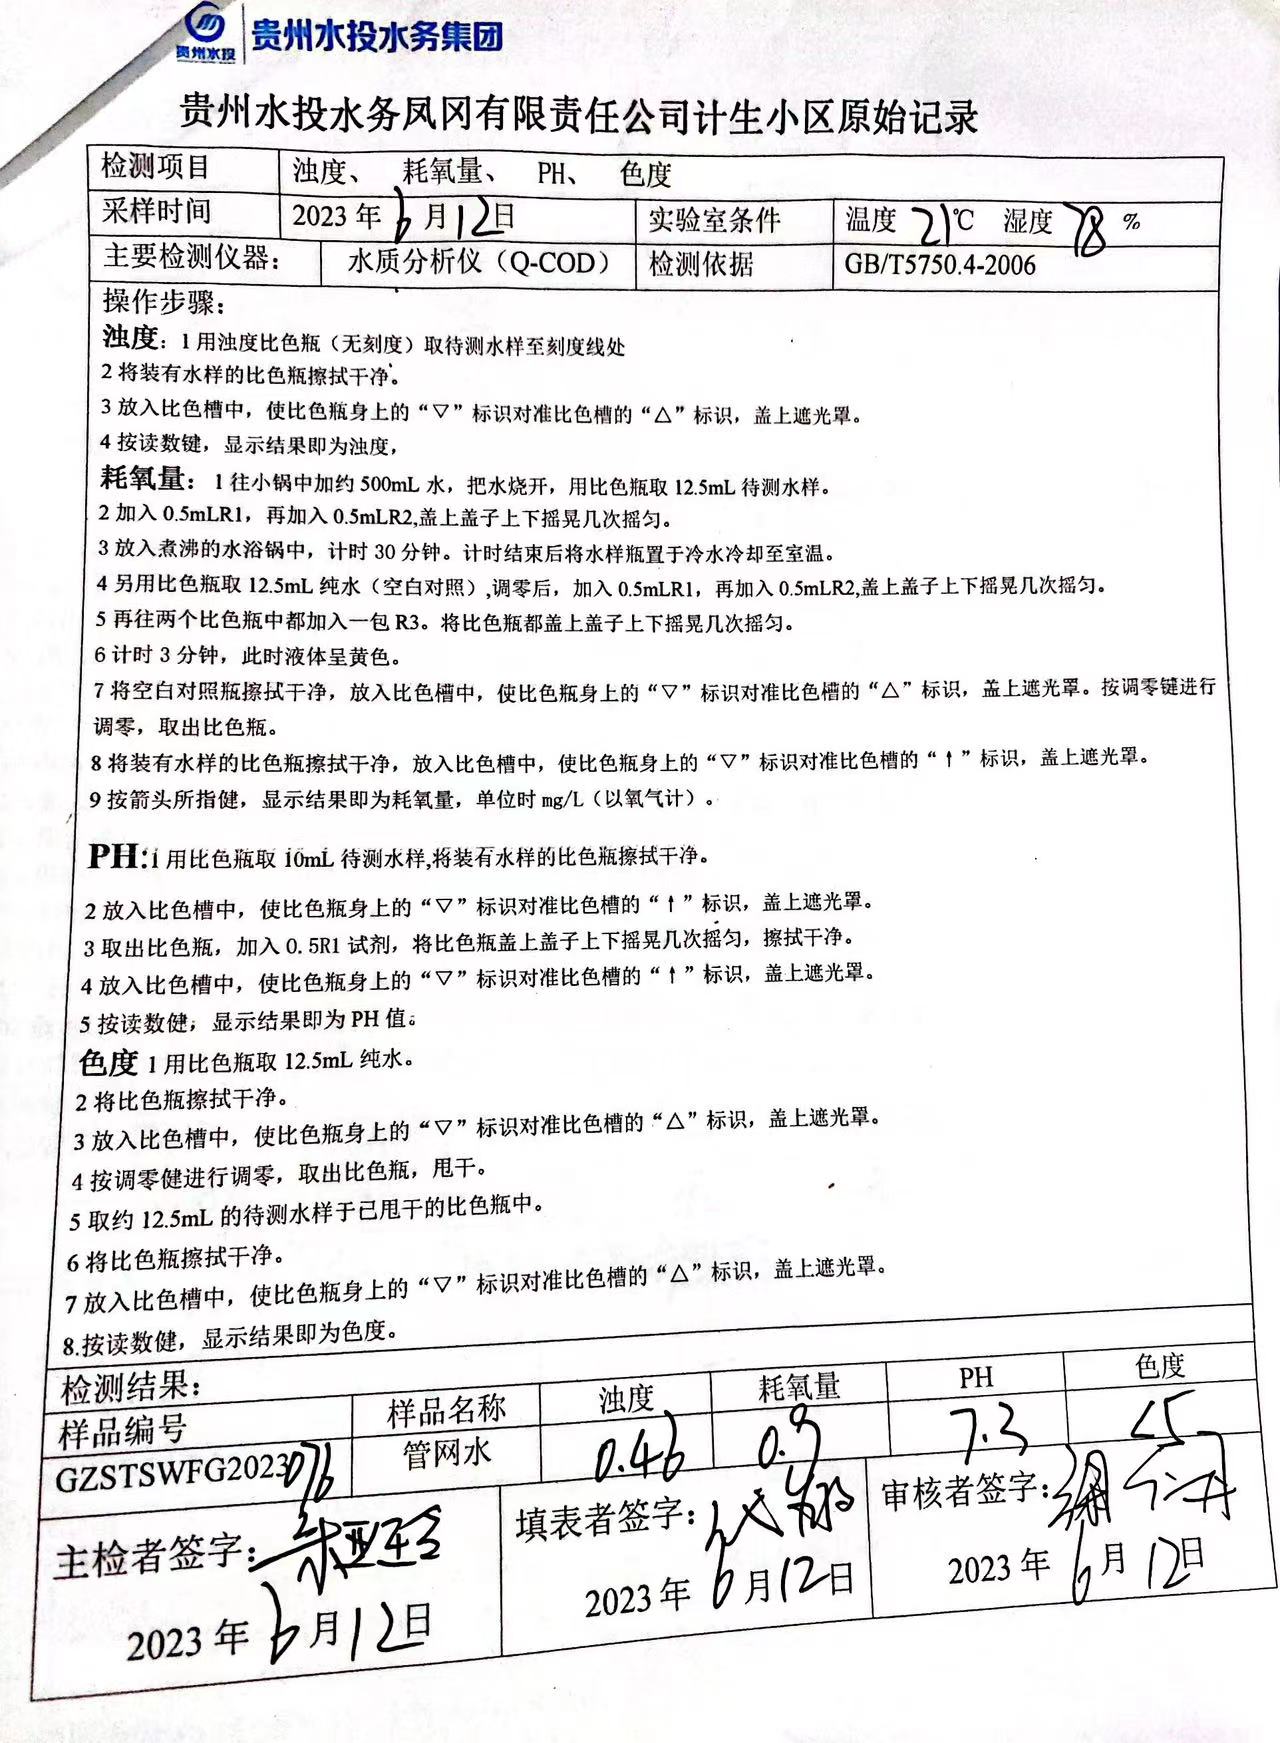 贵州水投
贵州水投水务集团
贵州水投水务凤冈有限责任公司计生小区原始记录
检测项目 浊度、 耗氧量、 PH、 色度
采样时间 2023年6月12日 实验室条件 温度 21℃ 湿度 78 %
主要检测仪器： 水质分析仪（Q-COD） 检测依据 GB/T5750.4-2006
操作步骤：
浊度：1用浊度比色瓶（无刻度）取待测水样至刻度线处
2将装有水样的比色瓶擦拭干净。
3放入比色槽中，使比色瓶身上的“▽”标识对准比色槽的“△”标识，盖上遮光罩。
4按读数键，显示结果即为浊度，
耗氧量：1往小锅中加约500mL水，把水烧开，用比色瓶取12.5mL待测水样。
2加入0.5mLR1，再加入0.5mLR2,盖上盖子上下摇晃几次摇匀。
3放入煮沸的水浴锅中，计时30分钟。计时结束后将水样瓶置于冷水冷却至室温。
4另用比色瓶取12.5mL纯水（空白对照）,调零后，加入0.5mLR1，再加入0.5mLR2,盖上盖子上下摇晃几次摇匀。
5再往两个比色瓶中都加入一包R3。将比色瓶都盖上盖子上下摇晃几次摇匀。
6计时3分钟，此时液体呈黄色。
7将空白对照瓶擦拭干净，放入比色槽中，使比色瓶身上的“▽”标识对准比色槽的“△”标识，盖上遮光罩。按调零键进行
调零，取出比色瓶。
8将装有水样的比色瓶擦拭干净，放入比色槽中，使比色瓶身上的“▽”标识对准比色槽的“↑”标识，盖上遮光罩。
9按箭头所指健，显示结果即为耗氧量，单位时mg/L（以氧气计）。
PH:1用比色瓶取10mL待测水样,将装有水样的比色瓶擦拭干净。
2放入比色槽中，使比色瓶身上的“▽”标识对准比色槽的“↑”标识，盖上遮光罩。
3取出比色瓶，加入0.5R1试剂，将比色瓶盖上盖子上下摇晃几次摇匀，擦拭干净。
4放入比色槽中，使比色瓶身上的“▽”标识对准比色槽的“↑”标识，盖上遮光罩。
5按读数健；显示结果即为PH值。
色度1用比色瓶取12.5mL纯水。
2将比色瓶擦拭干净。
3放入比色槽中，使比色瓶身上的“▽”标识对准比色槽的“△”标识，盖上遮光罩。
4按调零健进行调零，取出比色瓶，甩干。
5取约12.5mL的待测水样于已甩干的比色瓶中。
6将比色瓶擦拭干净。
7放入比色槽中，使比色瓶身上的“▽”标识对准比色槽的“△”标识，盖上遮光罩。
8.按读数健，显示结果即为色度。
检测结果：
样品编号 样品名称 浊度 耗氧量 PH 色度
GZSTSWFG2023076 管网水 0.46 0.9 7.3 <5
主检者签字： 填表者签字： 审核者签字：
2023年6月12日 2023年6月12日 2023年6月12日